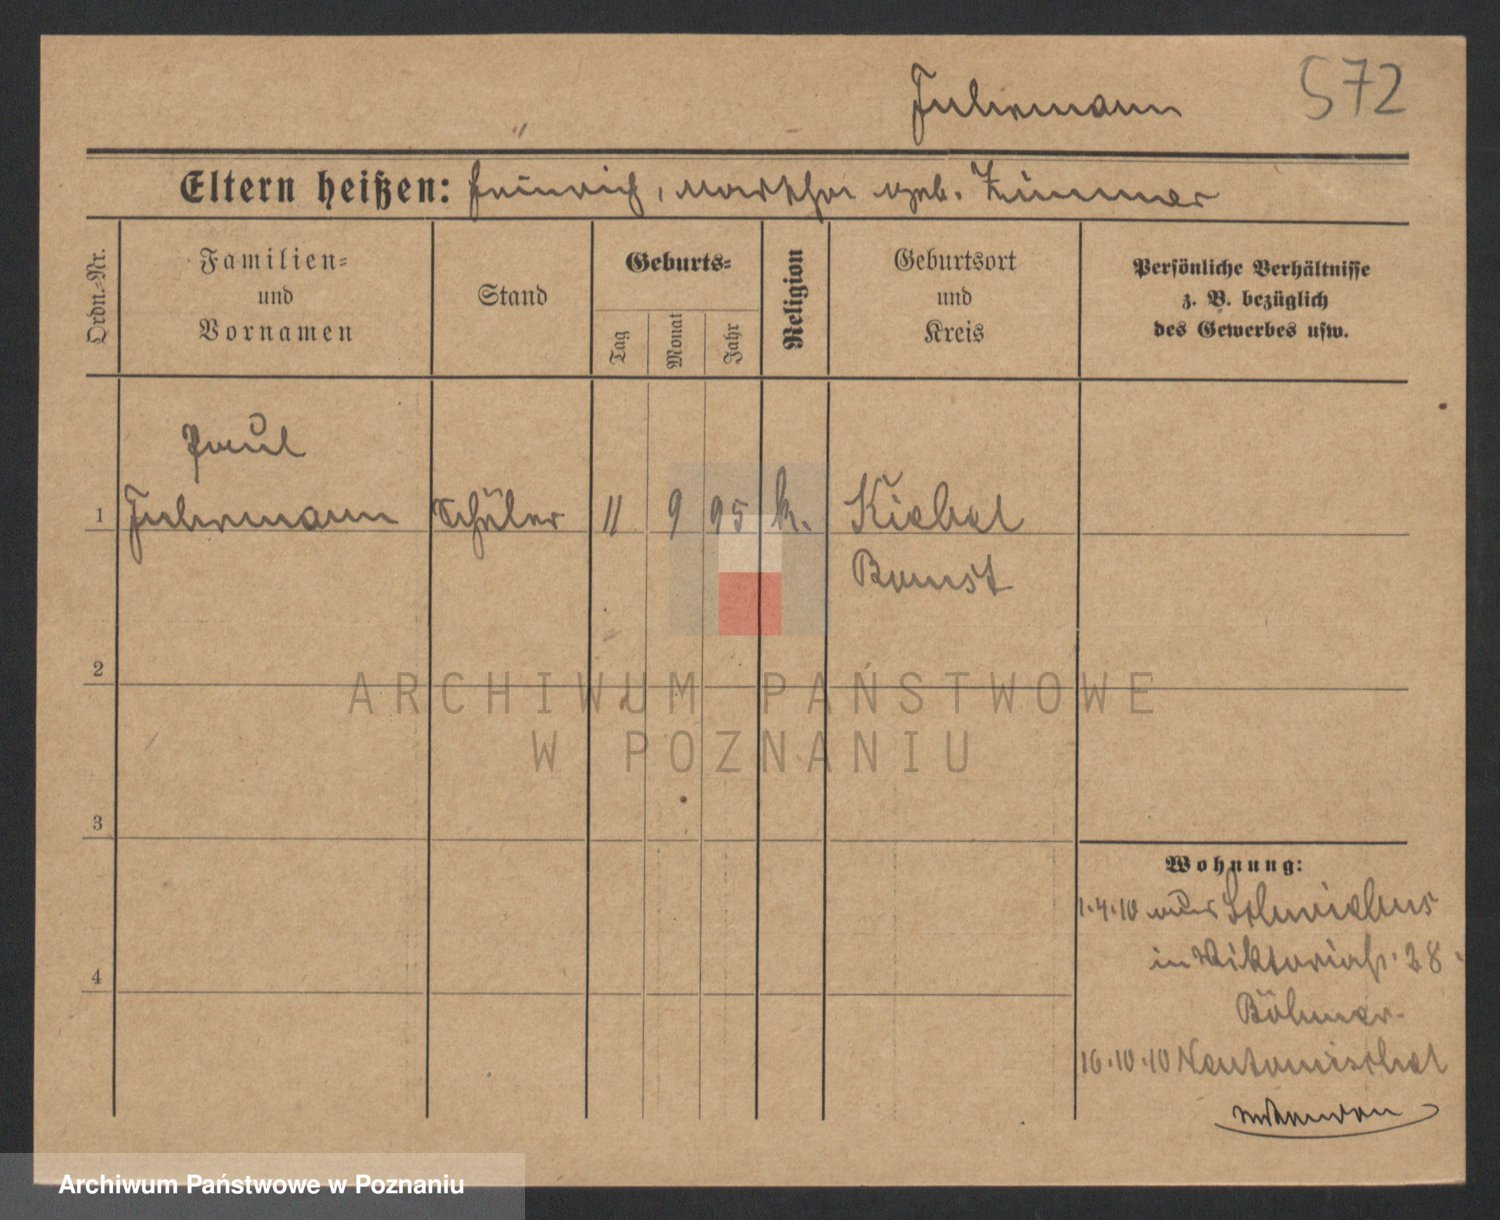 Fuhrmann 572
Eltern heißen: Heinrich, Martha geb. Zimmer
Ordn.-Nr.
Familien=
und
Vornamen
Stand
Geburts=
Tag
Monat
Jahr
Religion
Geburtsort
und
Kreis
Persönliche Verhältnisse
z. B. bezüglich
des Gewerbes usw.
Paul
1 Fuhrmann Schüler 11 9 95 k. Kiebel
Bomst
2
3
4
Wohnung:
1.4.10 aus Schwiebus
in Viktoriastr. 28
Böhmer
16.10.10 Neutomischel
ARCHIWUM PAŃSTWOWE
W POZNANIU
Archiwum Państwowe w Poznaniu